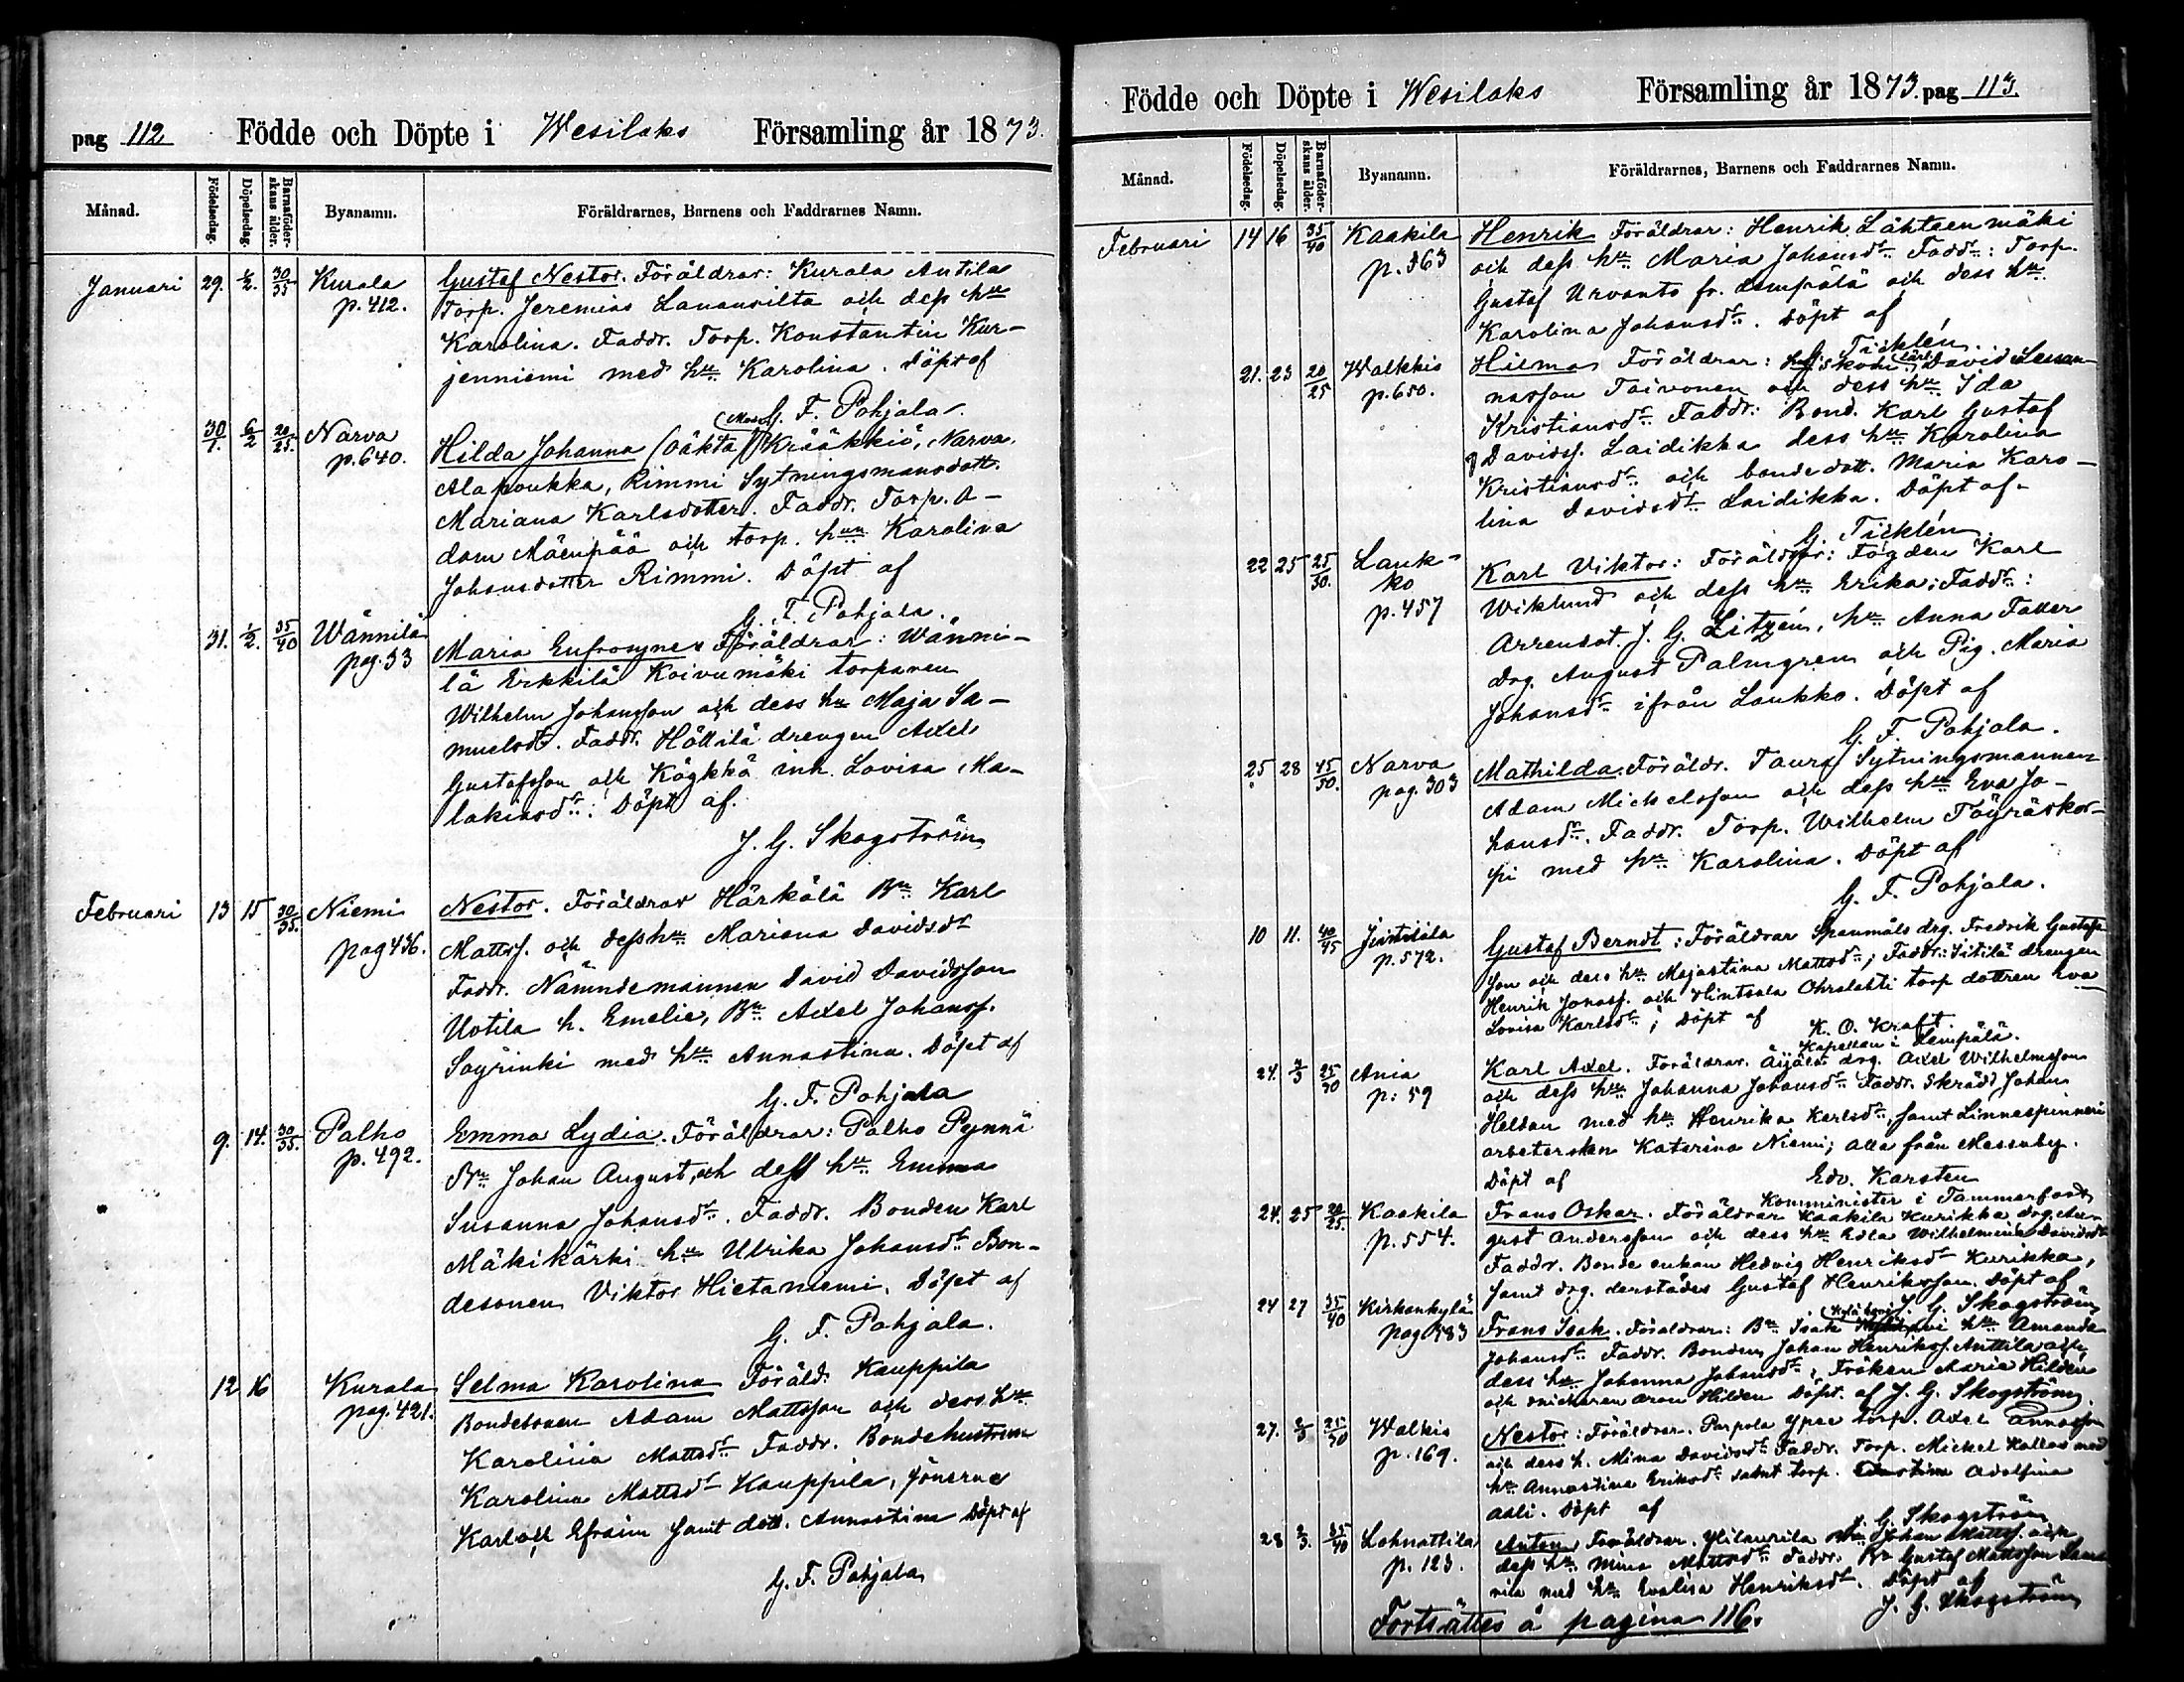 pag 112 Födde och Döpte i Wesilaks Församling år 1873.
Månad. Födelsedag. Döpelsedag. Barnaföderskans ålder. Byanamn. Föräldrarnes, Barnens och Faddrarnes Namn.
Januari 29. 1/2. 30/35 Kurala Gustaf Nestor. Föräldrar: Kurala Antila
p. 412. Torp. Jeremias Lanansilta och dess hu
Karolina. Faddr. Torp. Konstantin Kur-
jenniemi med hu Karolina. Döpt af
G. F. Pohjala.
30/1. 6/2 20/25. Narva Hilda Johanna (oäkta) Krääkkiö, Narva
p. 640. Alapoukka, Rimmi Sytningsmansdott.
Mariana Karlsdotter. Faddr. Torp. A-
dam Mäenpää och torp. hun Karolina
Johansdotter Rimmi. Döpt af
G. F. Pohjala.
31. 1/2. 35/40 Wännilä Maria Eufrosyne Föräldrar: Wänni-
pag. 33 lä Erkkilä Koivumäki torparen
Wilhelm Johansson och dess hu Maja Sa-
muelsdr. Faddr. Hällilä drengen Axel
Gustafsson och Kägkkä inh. Lovisa Ma-
lakiasdr: Döpt af.
J. G. Skogström
Februari 13 15 30/35. Niemi Nestor. Föräldrar Härkälä Bn Karl
pag 436. Mattsf. och dess hu Mariana Davidsdr
Faddr. Nämndemannen David Davidsson
Uotila h. Emelie, Bn Axel Johansf.
Soyrinki med hu Annastina. Döpt af
G. F. Pohjala
9. 14. 30/35. Palho Emma Lydia. Föräldrar: Palho Pynnä
p. 492. Bn Johan August, och dess hu Emma
Susanna Johansdr. Faddr. Bonden Karl
Mäkikärki hu Ulrika Johansdr Bon-
desonen Viktor Hietaniemi. Döpt af
G. F. Pohjala.
12 16 Kurala Selma Karolina Föräld. Kauppila
pag. 421. Bondesonen Adam Mattsson och dess hu
Karolina Mattsdr Faddr. Bondehustrun
Karolina Mattsdr Kauppila, sönerne
Karl och Efraim samt dott. Annastina Döpt af
G. F. Pohjala
Födde och Döpte i Wesilaks Församling år 1873. pag 113.
Månad. Födelsedag. Döpelsedag. Barnaföderskans ålder. Byanamn. Föräldrarnes, Barnens och Faddrarnes Namn.
Februari 14 16 35/40 Kaakila Henrik Föräldrar: Henrik Lähteenmäki
p. 363 och dess hu Maria Johansdr Faddr: Torp.
Gustaf Urvanto fr. Lempälä och dess hu
Karolina Johansdr. Döpt af
G. Ticklén.
21. 23 20/25 Walkkis Hilma Föräldrar: David
p. 650. Toivonen och dess hu Ida
Kristiansdr Faddr: Bond. Karl Gustaf
Davidsf. Laidikka dess hu Karolina
Kristiansdr och bondedott. Maria Karo-
lina Davidsdr Laidikka. Döpt af
G. Ticklén
22 25 25/30. Lauk- Karl Viktor: Föräldrar: Fogden Karl
ko Wiklund och dess hu Erika: Faddr:
p. 457 Arrendat. J. G. Litzén, hu Anna
drg. August Palmgren och Pig. Maria
Johansdr ifrån Laukko. Döpt af
G. F. Pohjala.
25 28 45/50. Narva Mathilda. Föräldr. Sytningsmannen
pag. 303 Adam Michelsson och dess hu Eva Jo-
hansdr. Faddr. Torp. Wilhelm Töyräskor-
pi med hu Karolina. Döpt af
G. F. Pohjala.
10 11. 40/45 Gustaf Berndt: Föräldrar Spanmåls drg. Fredrik Gustafs-
p. 572. son och dess hu Majastina Mattsdr; Faddr: drengen
Henrik Jonasf. och Hintsala torp dottren Eva
Lovisa Karlsdr; Döpt af K. O. Kraft.
Kapellan i Lempälä.
24. 2/3 25/30 Ania Karl Axel. Föräldrar. drg. Axel Wilhelmsson
p: 59 och dess hu Johanna Johansdr Faddr. Skrädd Johan
Heldan med hu Henrika Karlsdr, samt Linnespinneri
arbeterskan Katarina Niemi; alla från Messuby.
Döpt af Edv. Karsten
Komminister i Tammerfors
24. 25 20/25 Kaakila Frans Oskar. Föräldrar Kaakila Kurikka drg. Au-
p. 554. gust Andersson och dess hu Edla Wilhelmina Davidsdr
Faddr. Bonde enkan Hedvig Henriksdr Kurikka,
samt drg. derstädes Gustaf Henriksson. Döpt af
J. G. Skogström
24 27 35/40 Kirkonkylä Frans Isak. Föräldrar: Bn Isak hu Amanda
pag 583 Johansdr Faddr. Bonden Johan Henriksf. Anttila och
dess hu Johanna Johansdr, Fröken Maria Hildén
och snickaren Aron Hilden Döpt. af J. G. Skogström
27. 2/3 25/30 Walkis Nestor: Föräldrar. Parpola torp. Axel
p. 169. och dess h. Mina Davidsdr Faddr. Torp. Mickel med
hu Annastina Eriksdr samt torp. Adolfina
Döpt af
J. G. Skogström
28 2/3. 35/40 Lahnattila Anton Föräldrar. Johan Mattsf. och
p. 123. dess hu Mina Mattsdr Faddr. Bn Gustaf Mattsson
med hu Evalisa Henriksdr. Döpt af
J. G. Skogström
Fortsättes å pagina 116.